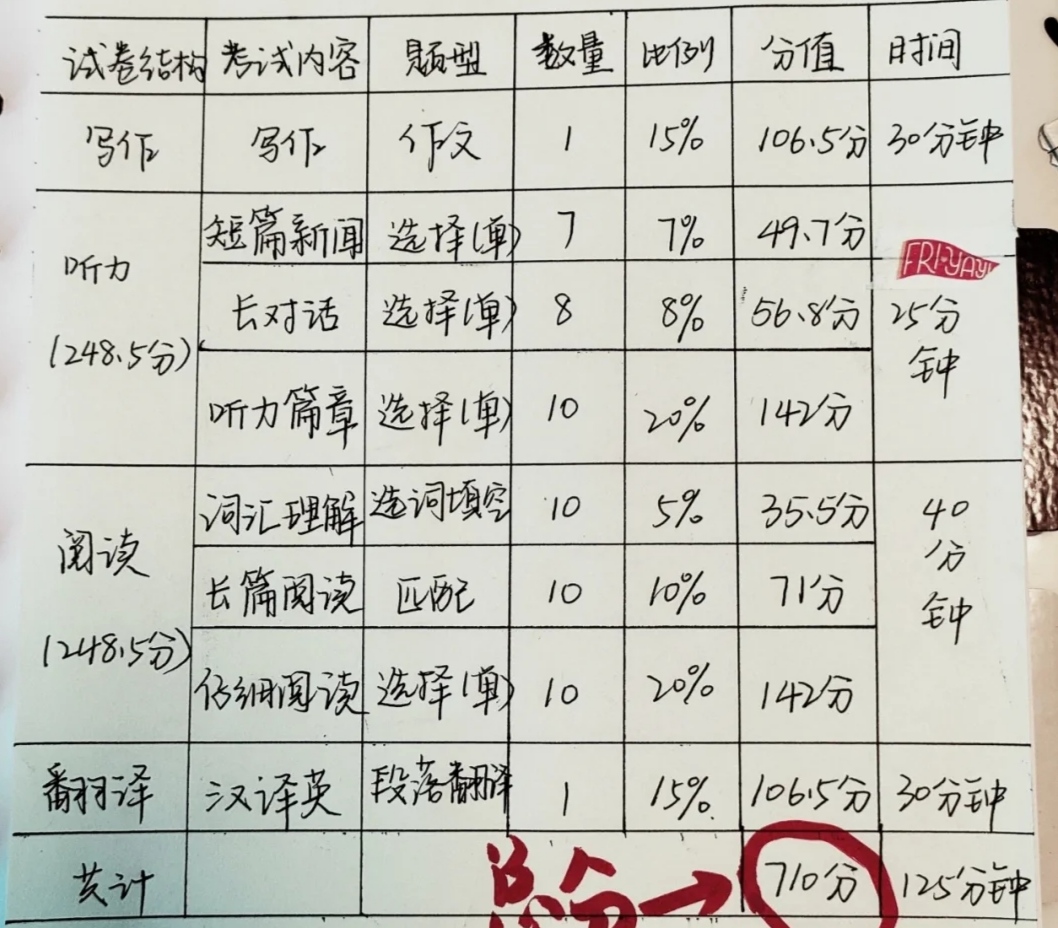 试卷结构 考试内容 题型 数量 比例 分值 时间
写作 写作 作文 1 15% 106.5分 30分钟
听力
(248.5分)
短篇新闻 选择(单) 7 7% 49.7分
FRI-YAY!
长对话 选择(单) 8 8% 56.8分
25分
钟
听力篇章 选择(单) 10 20% 142分
阅读
(248.5分)
词汇理解 选词填空 10 5% 35.5分
40
分
钟
长篇阅读 匹配 10 10% 71分
仔细阅读 选择(单) 10 20% 142分
翻译 汉译英 段落翻译 1 15% 106.5分 30分钟
共计 710分 125分钟
总分→